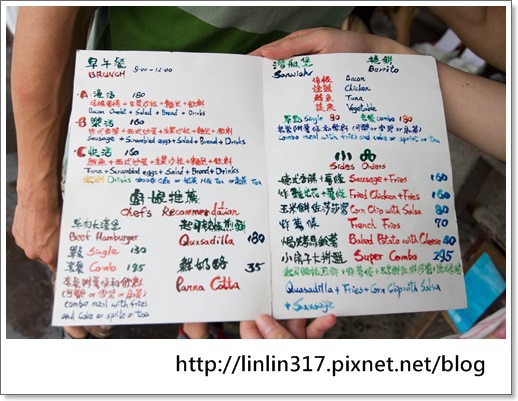 早午餐
BRUNCH 9:00~12:00
A 活 180
Bacon Omelet + Salad + Bread + Drinks
B 樂活 160
Sausage + Scrambled eggs + Salad + Bread + Drinks
C 快活 160
鮪魚 + 西式炒蛋 + 生菜沙拉 + 麵包 + 飲料
Tuna + Scrambled eggs + Salad + Bread + Drinks
飲料 Drinks Milk Tea Tea
推薦
Chef's Recommendation
牛肉漢堡
Beef Hamburger
單點 Single 130
套餐 Combo 195
combo meal with fries
and coke or sprite or tea
起司煎餅
Quesadilla 180
鮮奶酪 35
Panna Cotta
潛艇堡
Sanwich
捲餅
Burrito
培根 Bacon
燻雞 Chicken
鮪魚 Tuna
蔬菜 Vegetable
單點 Single 90
套餐 combo 180
套餐附薯條和飲料
combo meal with fries and coke or sprite or tea
小品
Sides Orders
德式香腸+薯條 Sausage + Fries 160
炸雞+薯條 Fried Chicken + Fries 160
玉米餅佐莎莎醬 Corn Chip with Salsa 80
炸薯條 French Fries 70
焗烤馬鈴薯 Baked Potato with Cheese 80
小房子大拼盤 Super Combo 295
Quesadilla + Fries + Corn Chip with Salsa
+ Sausage
http://linlin317.pixnet.net/blog